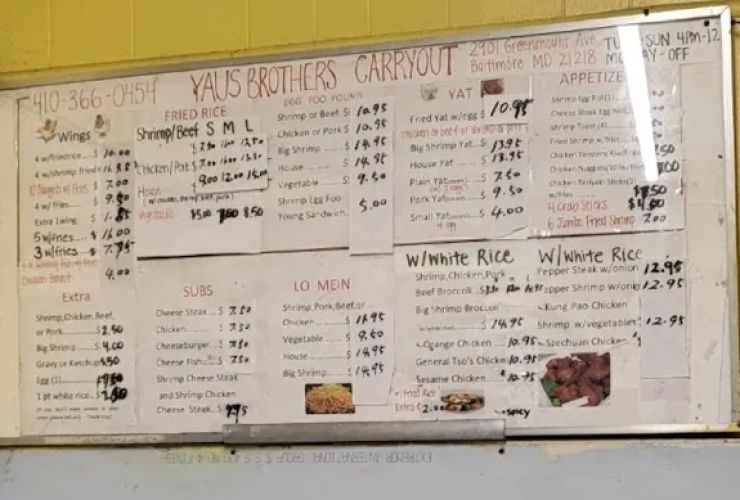 410-366-0454
YAUS BROTHERS CARRYOUT
2901 Greenmount Ave
Baltimore MD 21218
SUN 4PM-12
AY-OFF
Wings
4 w/friedrice $ 10.00
4 w/shrimp fried
10 Nuggets w/ fries $ 7.00
4 w/ fries $ 9.50
Extra 1 wing $
5 w/fries $ 16.00
3 w/fries $ 7.75
Chicken Breast 4.00
Extra
Shrimp, Chicken, Beef,
or Pork $ 2.50
Big Shrimp $ 4.00
Gravy or Ketchup
Egg (1)
1 pt white rice
FRIED RICE
Shrimp/Beef S M L
Chicken/Pork
9.00 12.00
Vegetable $5.00 7.00 8.50
SUBS
Cheese Steak $ 7.50
Chicken 7.50
Cheeseburger 7.50
Cheese Fish 7.50
Shrimp Cheese Steak
and Shrimp Chicken
Cheese Steak
EGG FOO YOUNG
Shrimp or Beef $ 10.95
Chicken or Pork $ 10.95
Big Shrimp $ 14.95
House $ 14.95
Vegetable $ 9.50
Shrimp Egg Foo
Young Sandwich 5.00
LO MEIN
Shrimp, Pork, Beef, or
Chicken $ 11.95
Vegetable $ 9.50
House $ 14.95
Big Shrimp $ 14.95
YAT
Fried Yat w/egg $ 10.95
Big Shrimp Yat $ 13.95
House Yat $ 13.95
Plain Yat $ 7.50
Pork Yat $ 9.50
Small Yat $ 4.00
W/White Rice
Shrimp, Chicken, Pork
Beef Broccoli
Big Shrimp Broccoli
$ 14.95
Orange Chicken 10.95
General Tso's Chicken 10.95
Sesame Chicken $ 10.95
Fried Rice
Extra 2.00
spicy
W/White Rice
Pepper Steak w/onion 12.95
Pepper Shrimp w/onion 12.95
Kung Pao Chicken
Shrimp w/vegetables 12.95
Szechuan Chicken
APPETIZE
Shrimp Egg Roll (1)
Cheese Steak Egg Roll
Shrimp Toast (4)
Fried Shrimp w/fries
Chicken Tenders
Chicken Nuggets
Chicken Teriyaki Sticks
4 Crab Sticks
6 Jumbo Fried Shrimp 7.00